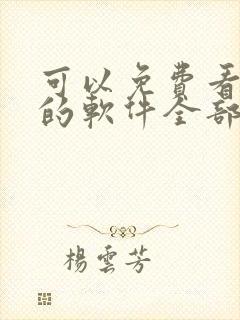 可以免費看
的軟件全部
楊雲芳